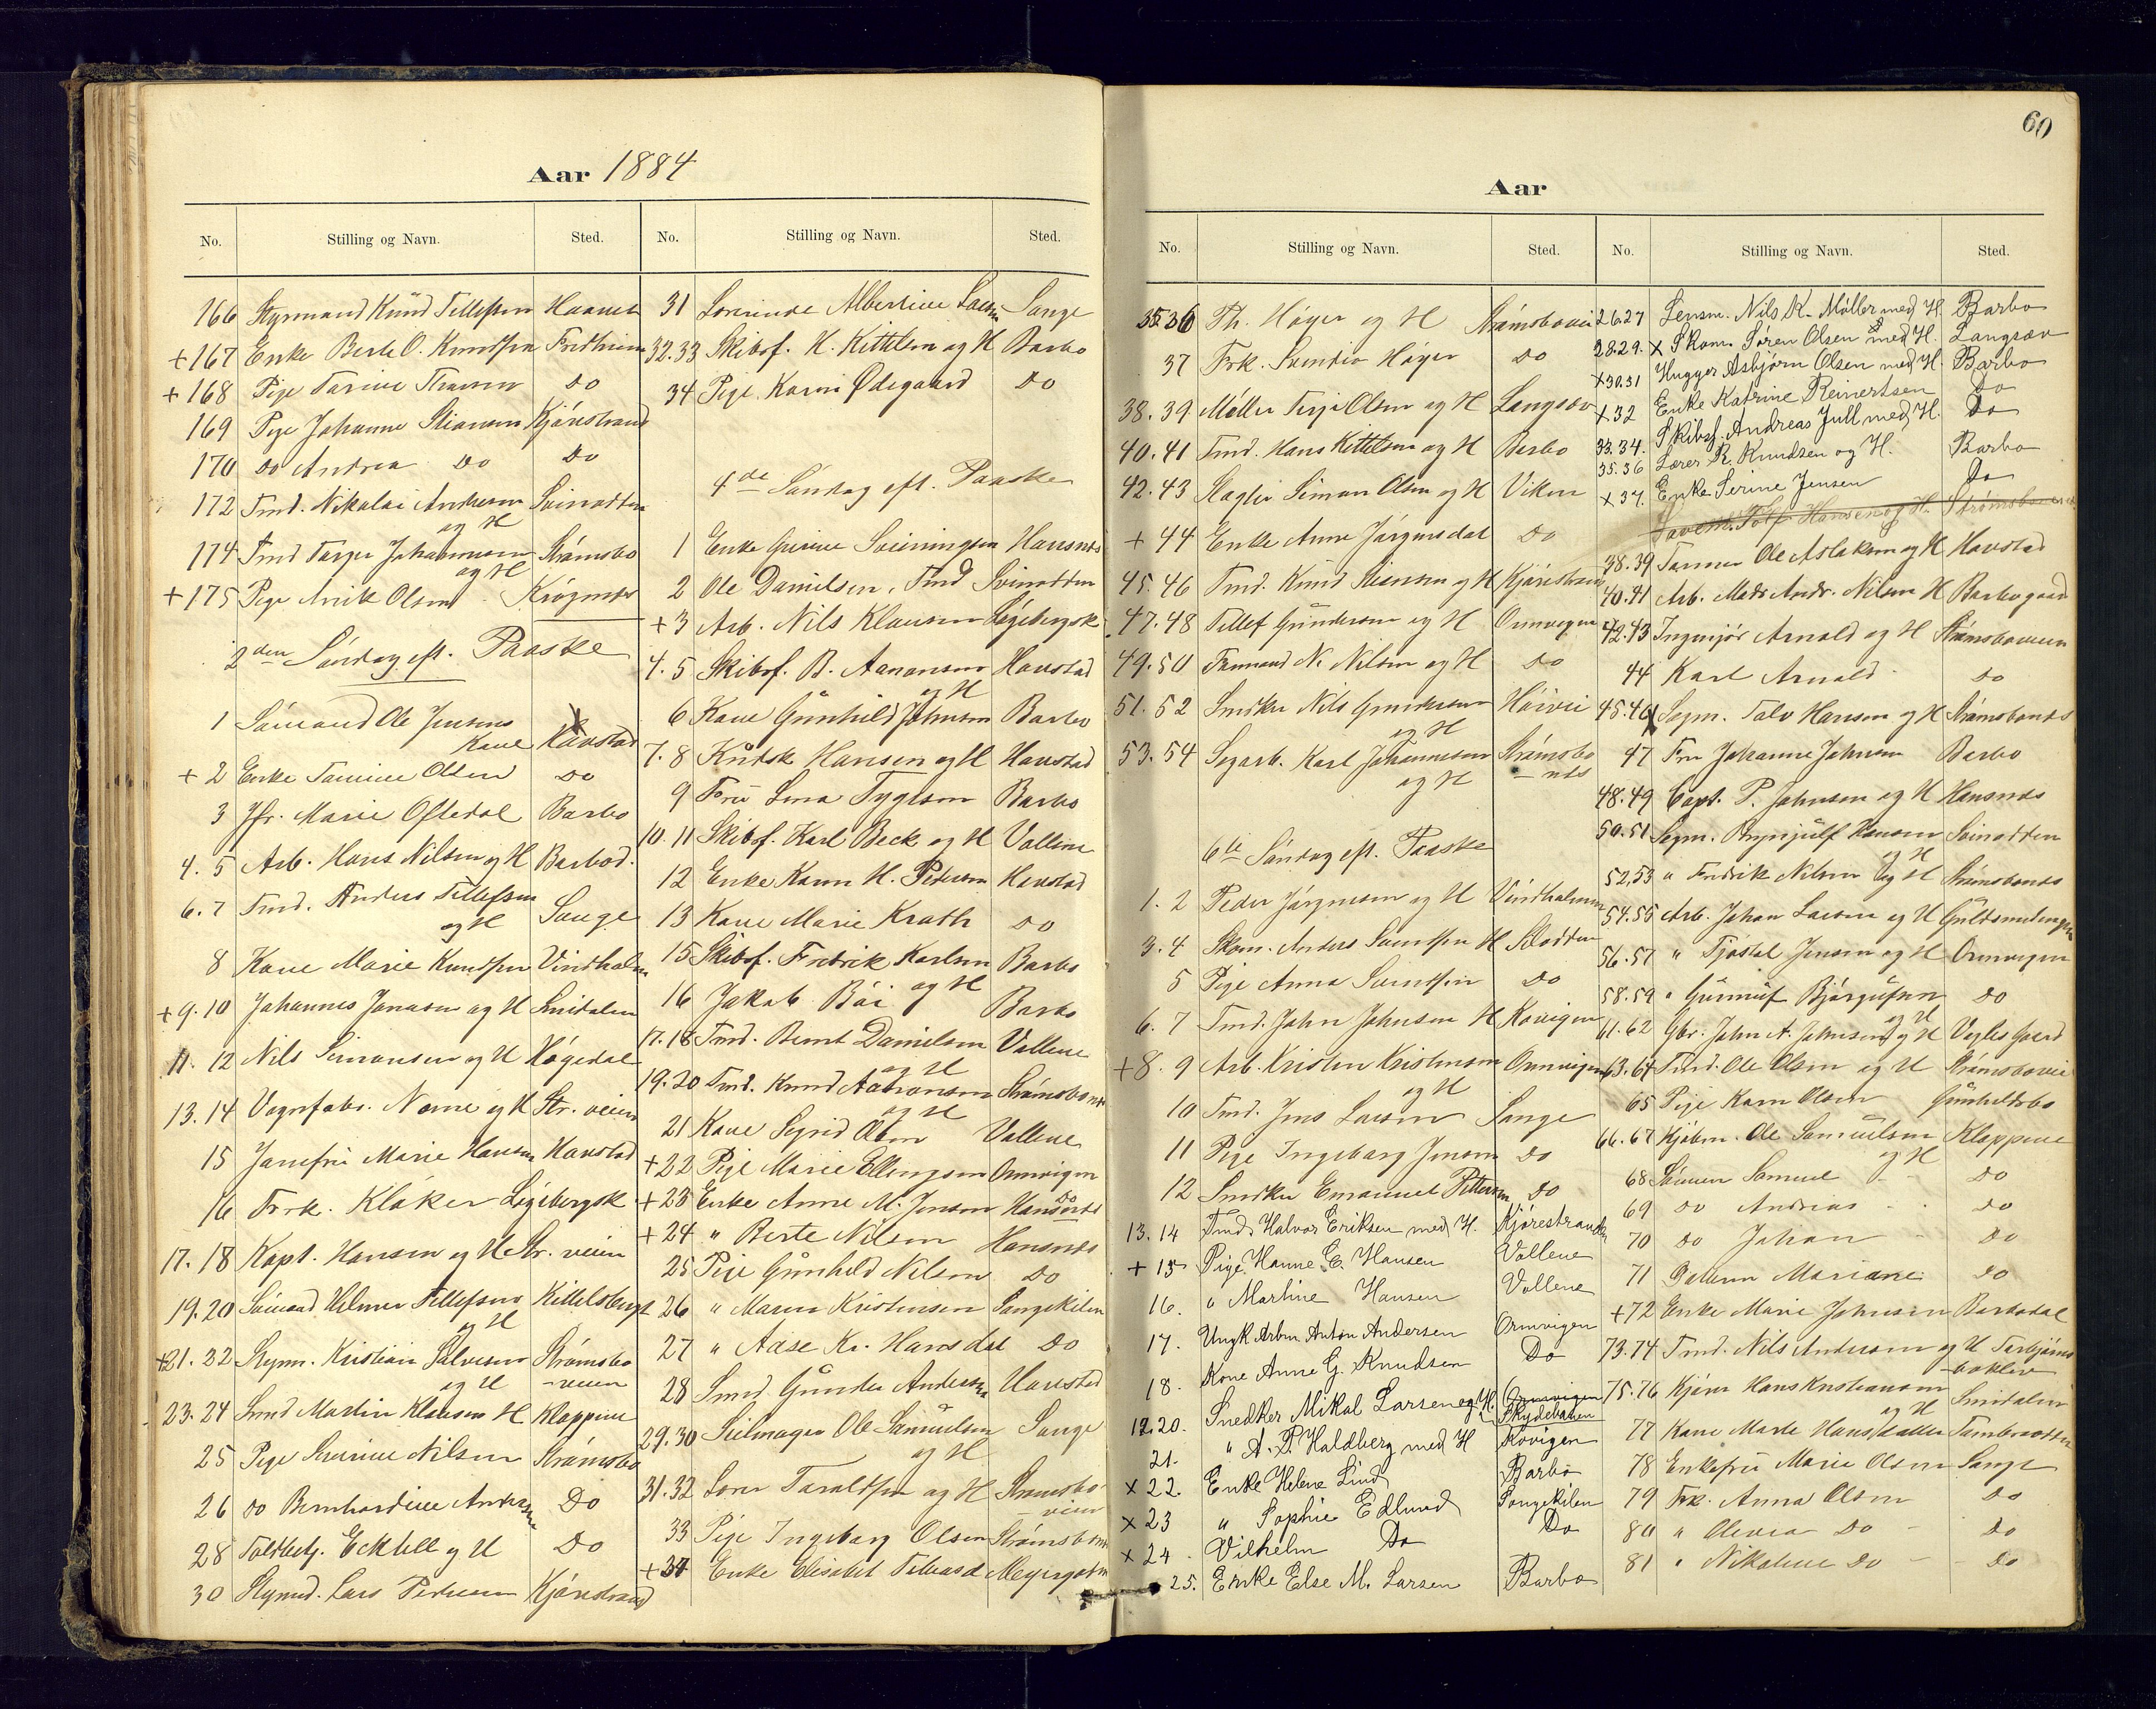 Aar 1884
No. Stilling og Navn. Sted.
166 Styrmand Knud Tellefsen
+167 Enke Berte O. Knudsen Fredheim
+168 Pige Tarine Do
169 Pige Johanne Stiansen Kjørestrand
170 Do Andrea Do Do
172 Tmd. Nikolai Andersen Svinodden
og H
174 Tmd Tarjer Johannesen Strømsbo
og H
+175 Pige Anik Olsen
2den Søndag eft. Paaske
1 Sømand Ole Jensens
Kone Havstad
+2 Enke Tomine Olsen Do
3 Jfr. Marie Oftedal Barbo
4.5 Arb. Hans Nilsen og H Barbod.
6.7 Tmd. Anders Tellefsen
og H Songe
8 Kone Marie Knudsen Vindholm
+9.10 Johannes Jonasen og H
11.12 Nils Simonsen og H Høgedal
13.14 Vognfabr. Næme og H Str. veien
15 Jomfru Marie Hansen Havstad
16 Frk. Kløker Løgebergsk
17.18 Kapt. Hansen og H Str. veien
19.20 Sømand Helmer Tellefsen Kittelsbergt
og H
+21.22 Stymr. Kristian Salvesen Strømsbo
og H -veien
23.24 Smd Martin Klausen H Klappene
25 Pige Severine Nilsen Strømsbo
26 Do Bernhardine Andersen Do
28 Toldbetj. Ecktell og H Do
30 Stymd. Lars Pedersen Kjørestrand
No. Stilling og Navn. Sted.
31 Lovinde Albertine Larsen Songe
32.33 Skibsf. K. Kittelsen og H Barbo
34 Pige Karen Ødegaard Do
4de Søndag eft. Paaske
1 Enke Gurine Sveiningsen Hansnes
2 Ole Danielsen, Tmd Svinodden
+3 Arb. Nils Klausen Løgebergsk
4.5 Skibsf. B. Aanonsen Havstad
og H
6 Kone Gunhild Johnsen Barbo
7.8 Kudsk Hansen og H Havstad
9 Fru Lina Tygesen Barbo
10.11 Skibsf. Karl Beck og H Vollene
12 Enke Karen H. Pedersen Havstad
13 Kone Marie Krath Do
15 Skibsf. Fredrik Karlsen Barbo
og H
16 Jakob Bøe Barbo
17.18 Tmd. Bernt Danielsen Vollene
og H
19.20 Tmd. Knud Aanonsen Strømsbones
og H
21 Kone Sigrid Olsen Vollene
+22 Pige Marie Ellingsen Ormvigen
+23 Enke Anne M. Jensen Do
+24 " Berte Nilsen Hansnes
25 Pige Gunhild Nilsen Do
+26 " Maren Kristensen Songekilen
27 " Aase Kr. Hansdat Do
28 Smd Gunder Andersen Havstad
29.30 Seilmager Ole Samuelsen Songe
og H
31.32 Loser Taraldsen og H Strømsbo
veien
33 Pige Ingeborg Olsen Strømsbones
+34 Enke Elisabet
Aar
60
No. Stilling og Navn. Sted.
35.36 Th. Høyer og H Strømsbovei
37 Frk. Høyer Do
38.39 Møller Terje Olsen og H Langsæv
40.41 Tmd. Hans Kittelsen og H Barbo
42.43 Slagter Simon Olsen og H Viken
+44 Enke Anne Jørgensdat Do
45.46 Tmd. Knud Stiansen og H Kjørestrand
47.48 Tellef Gundersen og H Ormvigen
49.50 Tømmand N. Nilsen og H Do
51.52 Snedker Nils Gundersen Høivei
og H
53.54 Sagarb. Karl Johannesen Strømsbo
og H -nes
6te Søndag eft. Paaske
1.2 Peder Jørgensen og H Vindholmen
3.4 Skom. Anders Svendsen H Slodden
5 Pige Anna Svendsen Do
6.7 Tmd. John Johnsen H Kovigen
+8.9 Arb. Kristen Kristensen Ormvigen
og H
10 Tmd. Jens Larsen Songe
11 Pige Ingeborg Jensen Do
12 Snedker Emanuel Pettersen Do
13.14 Tmd. Halvor Eriksen med H. Kjørestranden
+15 Pige Hanne C. Hansen Vollene
16. " Martine Hansen Vollene
17. Ungk Arbm. Anton Andersen Ormvigen
18. Kone Anne G. Knudsen Do
19.20. Snedker Mikal Larsen og H. Skydebanen
21. " A. P. Haldberg med H Kovigen
x 22. Enke Helene Lind Barbo
x 23 " Sophie Edlund Songekilen
x 24 Vilhelm Do Do
25. Enke Else M. Larsen Barbo
No. Stilling og Navn. Sted.
26.27 Lensm. Nils K. Møller med H. Barbo
28.29. x Skom. Søren Olsen med H. Langsæv
x30.31 Hugger Asbjørn Olsen med H. Barbo
x32 Enke Katrine Reinertsen Do
33.34. Skibsf. Andreas Jull med H. Do
35.36 Lærer R. Knudsen og H. Barbo
x37. Enke Serine Jensen Do
Hansen og H. Strømsbo
38.39 Tømmer Ole Aslaksen og H Havstad
40.41 Arb. Mads Andr. Nilsen H Barbogaard
42.43 Ingeniør Arnold og H Strømsboveien
44 Karl Arnold Do
45.46 Sagm. Talv Hansen og H Strømsbones
47 Fru Johanne Johnsen Barbo
48.49 Capt. P. Johnsen og H Hansnes
50.51 Sagm. Brynjulf Hansen Svinodden
og H
52.53 " Fredrik Nilsen og H Strømsbones
54.55 Arb. Johan Larsen og H Guldsmedengen
56.57 " Tjøstel Jensen og H Ormvigen
58.59 " Gunnuf Bjørgufsen Do
og H
61.62 Gbr. John A. Johnsen og H
63.64 Tmd. Ole Olsen og H Strømsbovei
65 Pige Karen Olsen Gunhildsbo
66.67 Kjøbm. Ole Samuelsen Klappene
og H
68 Sønnen Samuel Do
69 Do Andreas Do
70 Do Johan Do
71 Datteren Mariane Do
+72 Enke Marie Johnsen Barbodal
73.74 Tmd. Nils Andersen og H Torbjørns
bakken
75.76 Kjøm Hans Kristiansen
og H
77 Kone Marte
78 Enkefru Marie Olsen Songe
79 Frk. Anna Olsen Do
80 " Olevia Do Do
81 " Nikoline Do Do